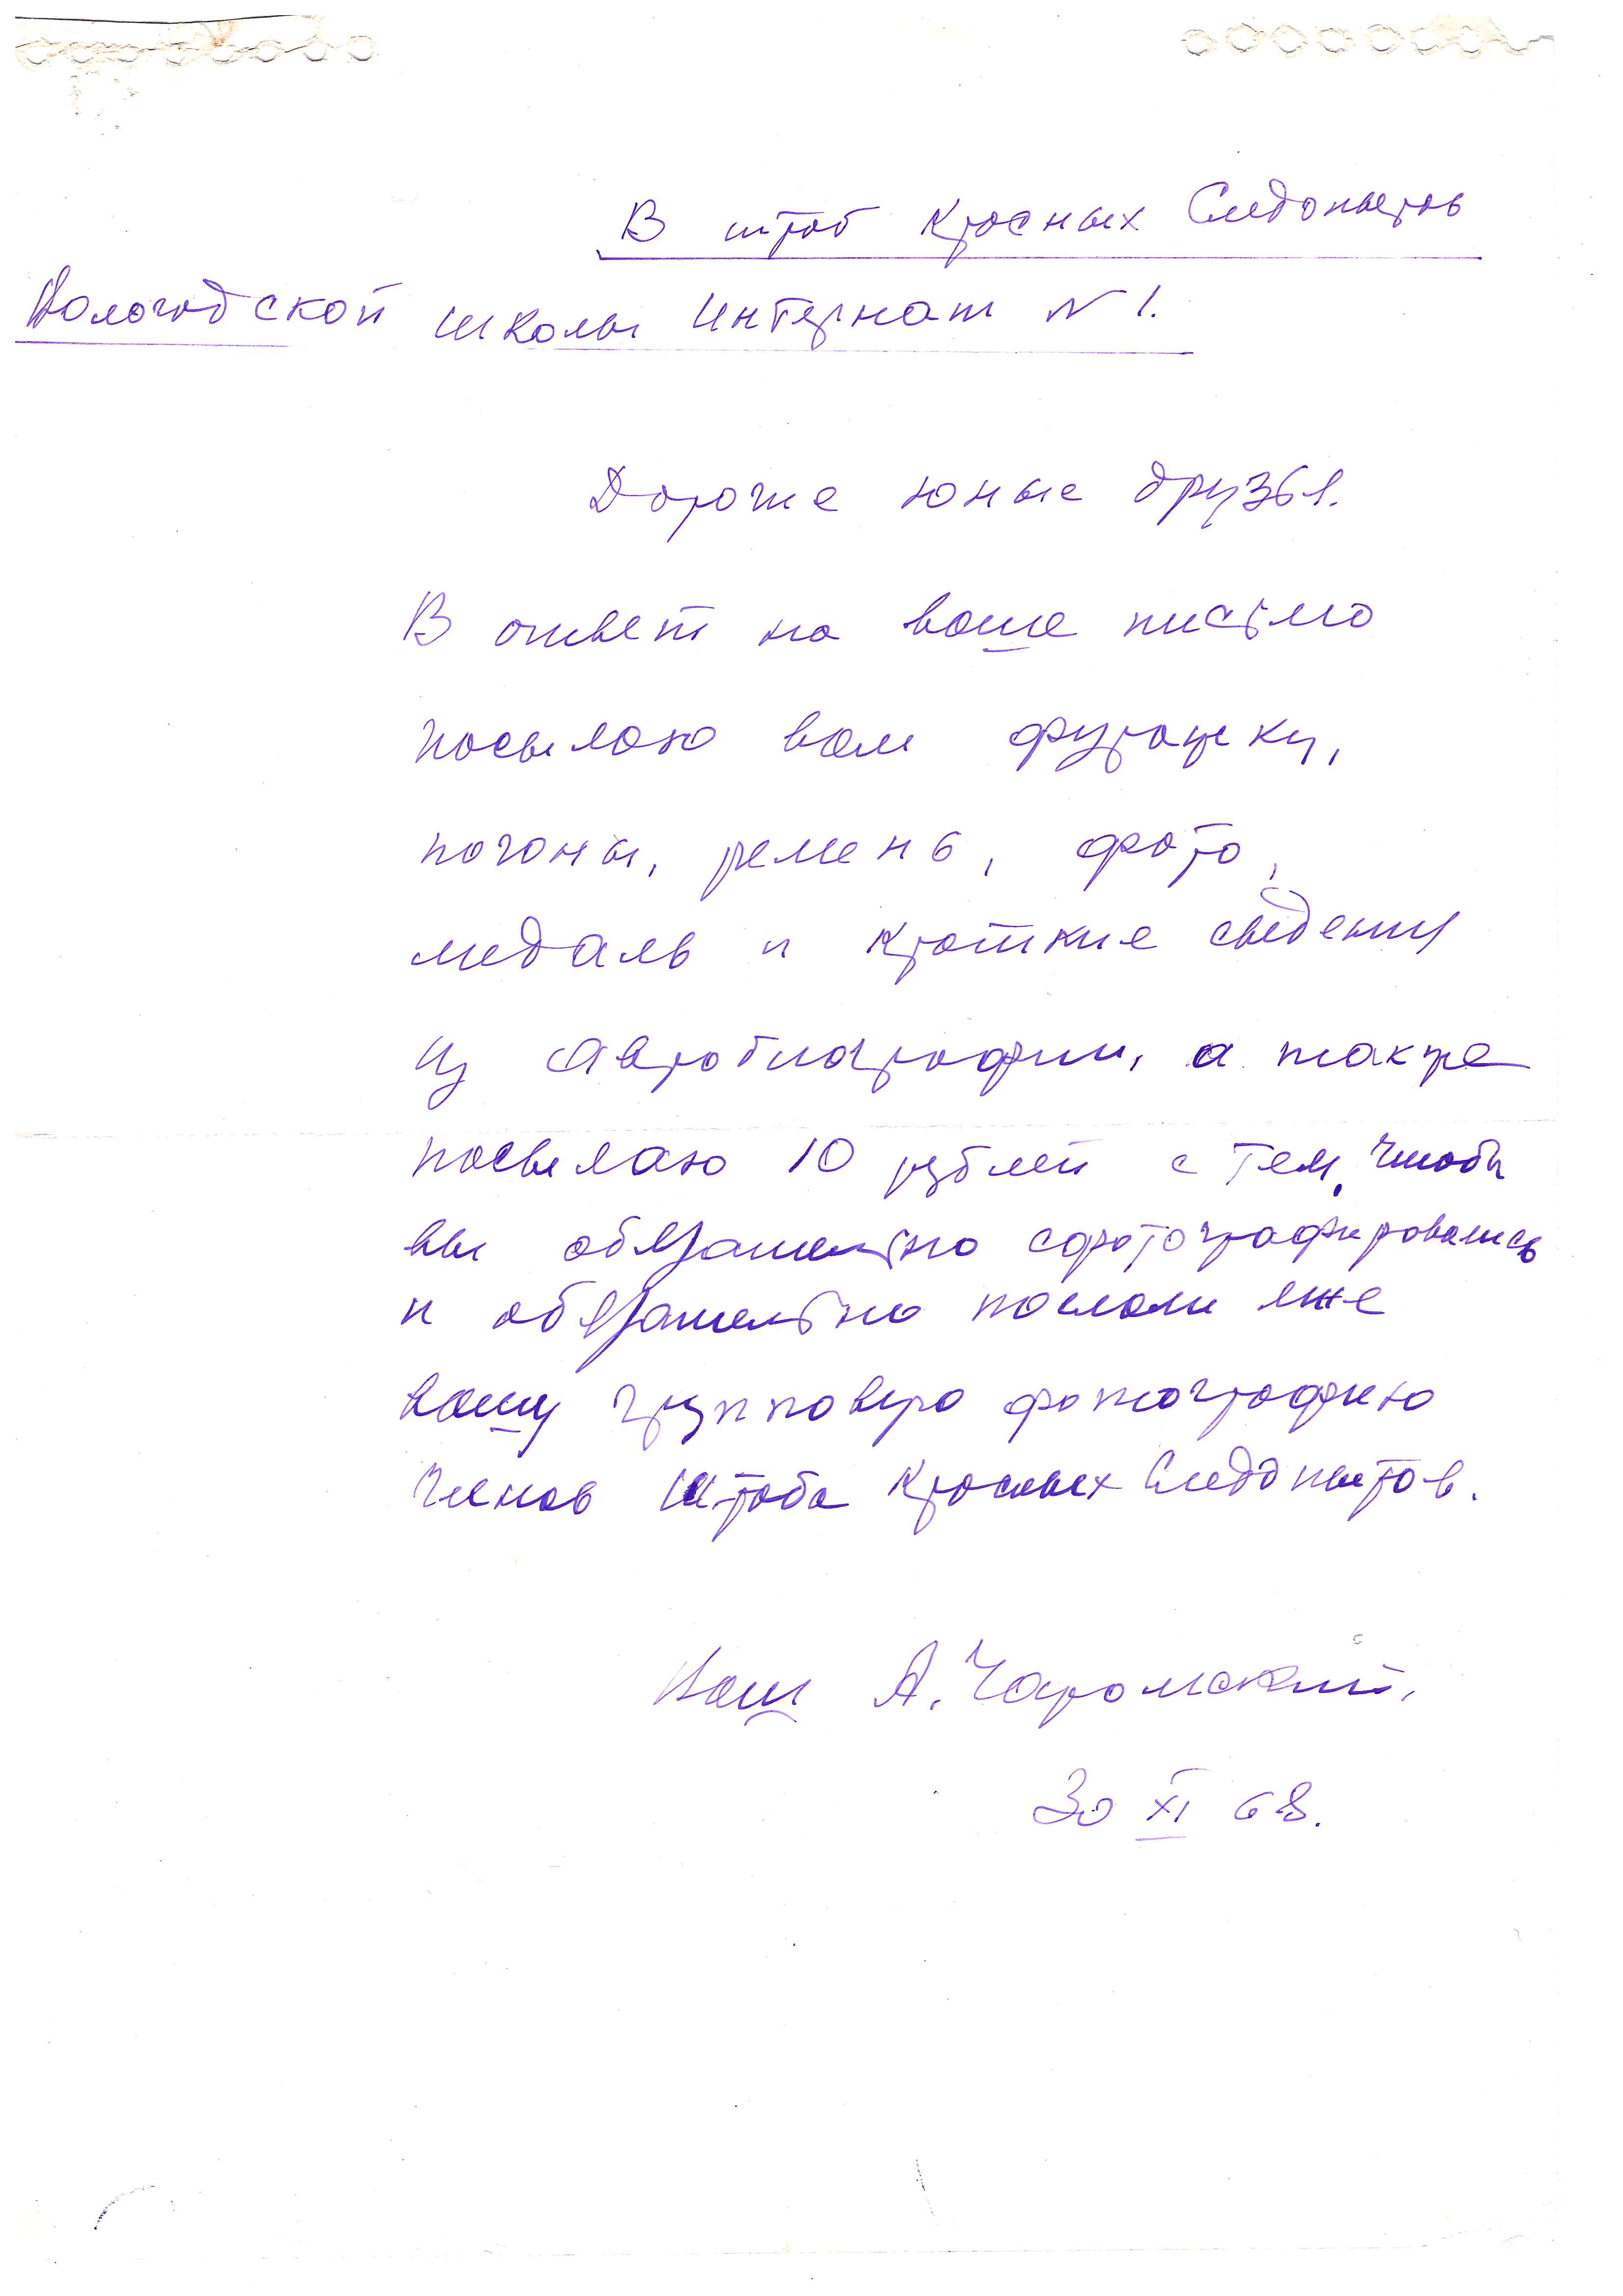 В штаб Красных Следопытов
Вологодской школы Интернат N 1.
Дорогие юные друзья.
В ответ на ваше письмо
посылаю вам фуражку,
погоны, ремень, фото,
медаль и краткие сведения
из автобиографии, а также
посылаю 10 рублей с тем, чтобы
вы обязательно сфотографировались
и обязательно послали мне
вашу групповую фотографию
членов Штаба Красных Следопытов.
Ваш А. Чаромский.
30 XI 68.